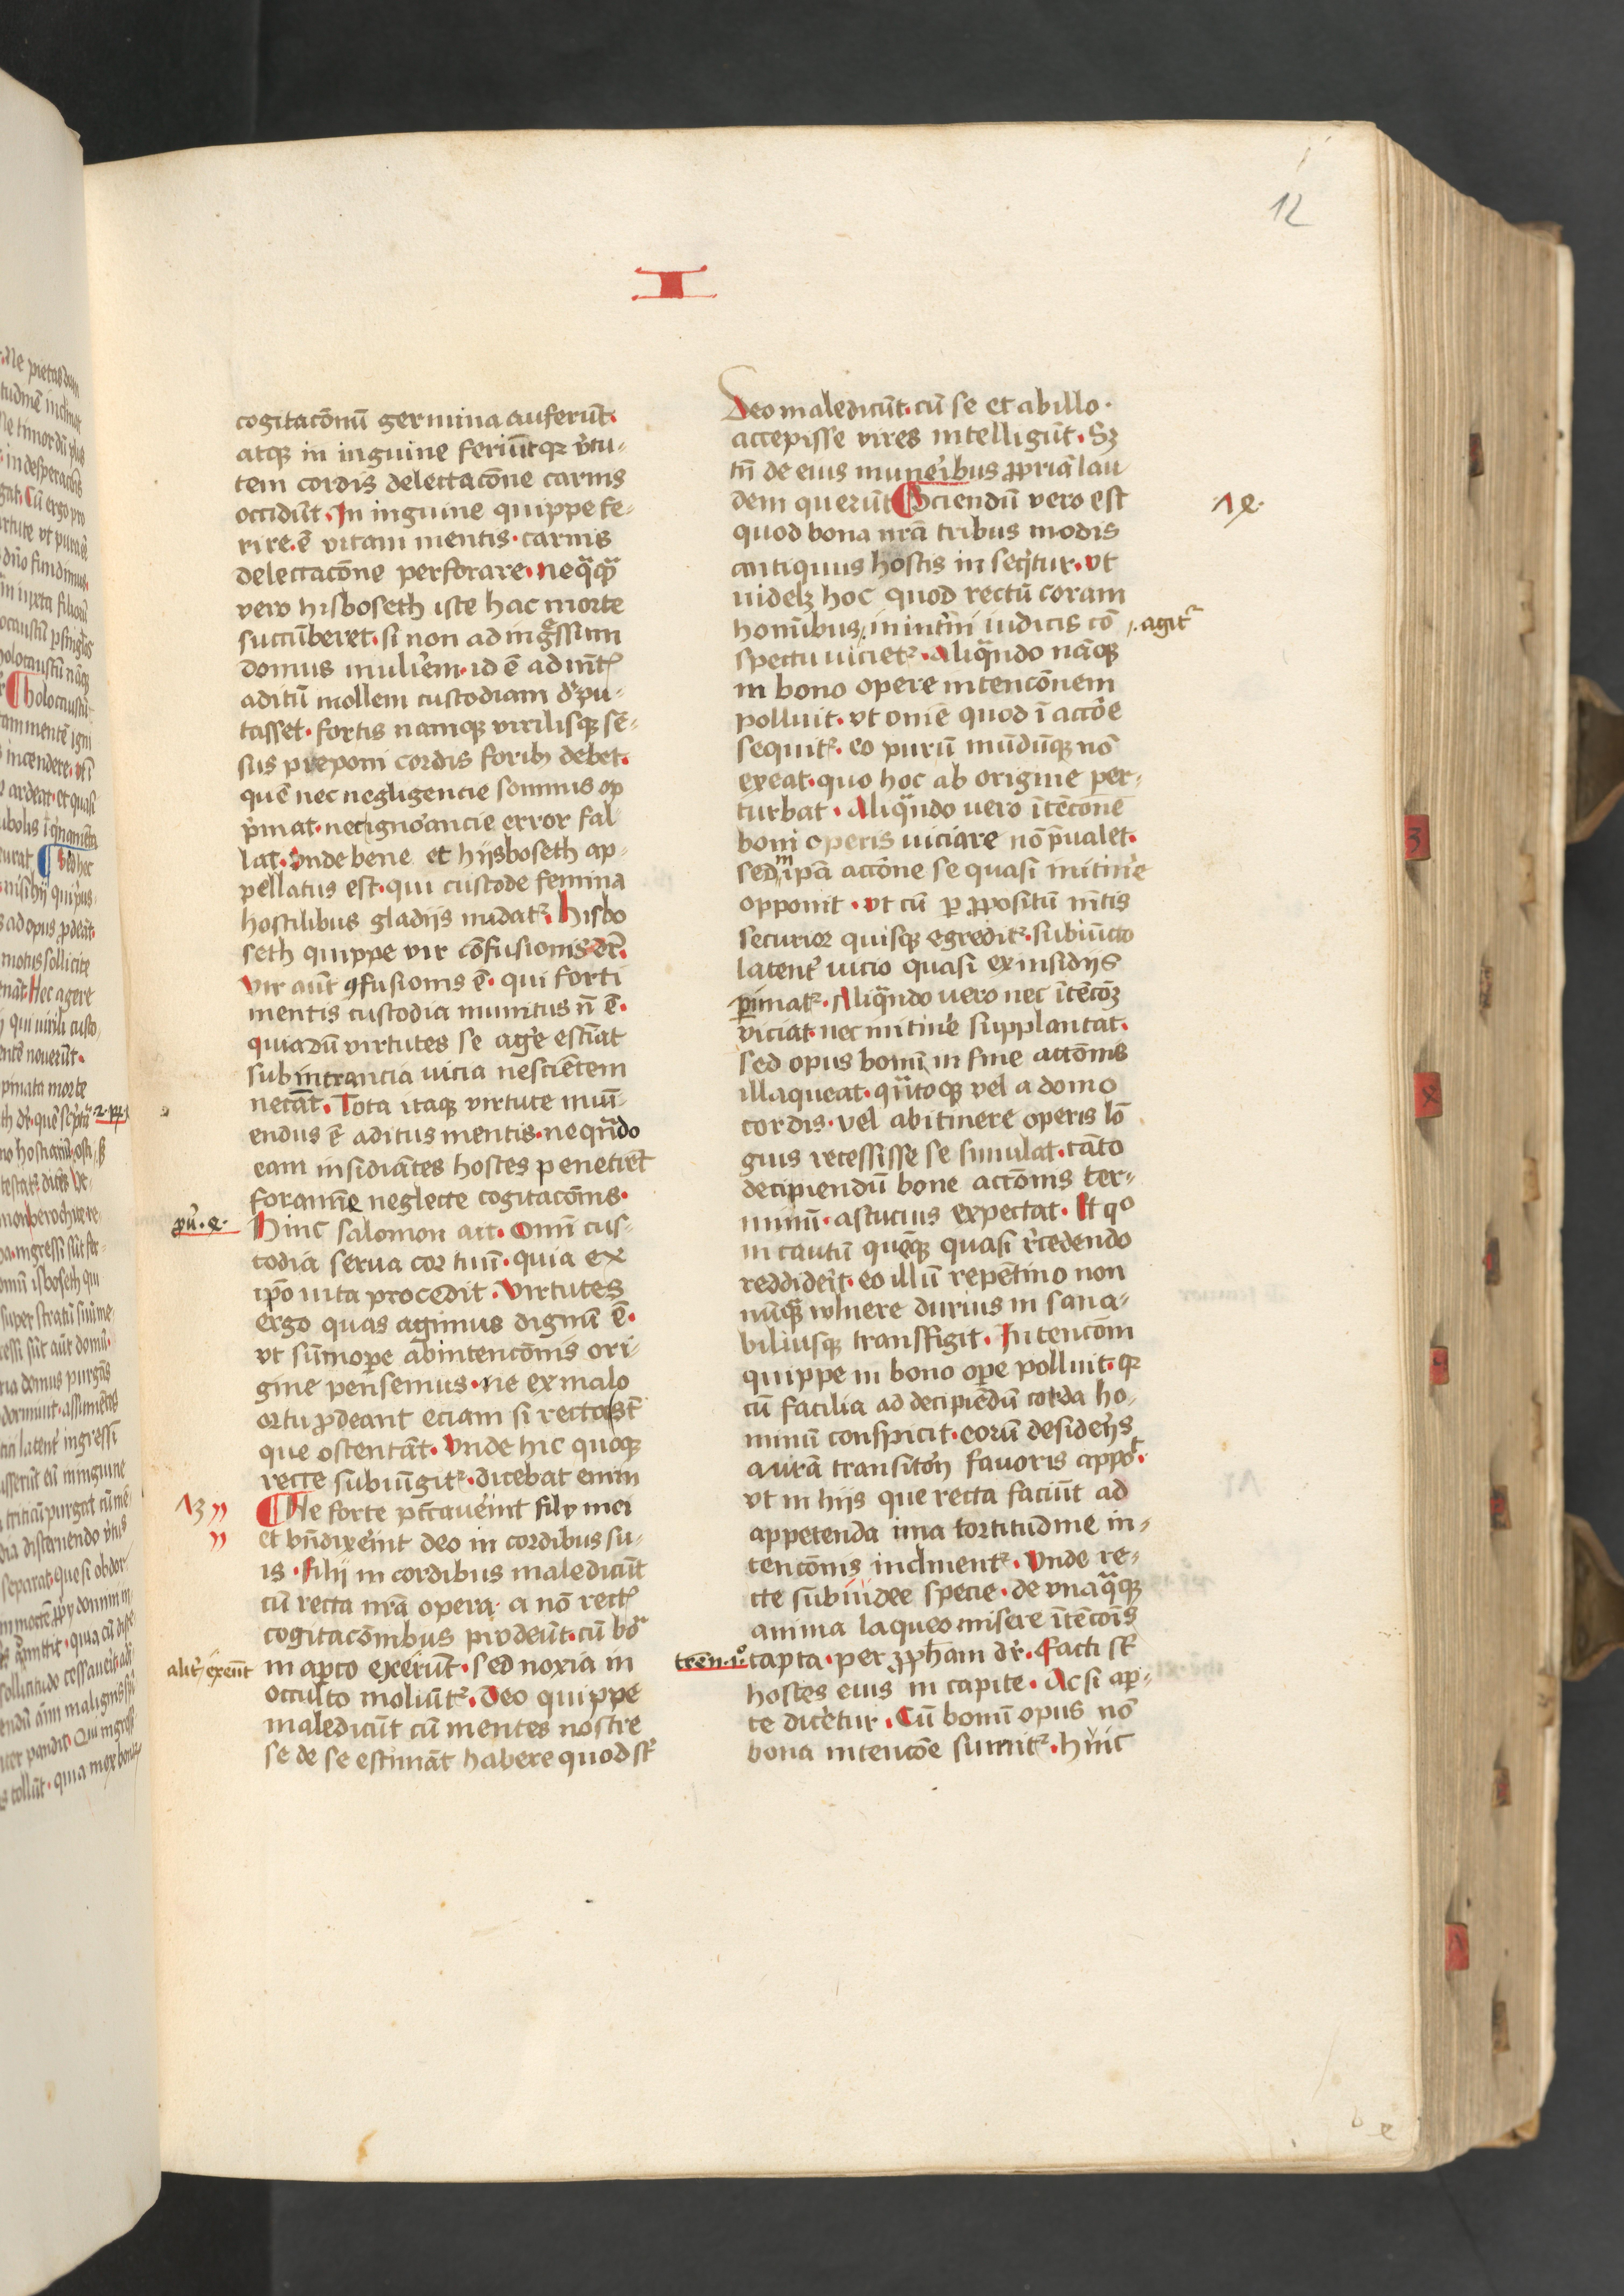 12
I
cogitacōnū germina auferūt·
atq̢ in inguine feriūt q̢ v̓tu-
tem cordis delectacōne carnis
occidūt. In inguine quippe fe-
rire·ē vitam mentis·carnis
delectacōne perforare·neqᵃqᵃ
vero hisboseth iste hac morte
succūberet·si non ad ingᵒssum
domus muliẻm·id ē ad mēt̓
aditū mollem custodiam d̓pu-
tasset·fortis namq̢ virilisq̢ sē-
sus preponi cordis forib̢ debet·
quē nec negligencie somnus op
p̓mat·nec ignoᵃncie error fal
lat·vnde bene et hijsboseth ap-
pellatus est·qui custode femina
hostilibus gladijs nudat᷑. hisbo
seth quippe vir cōfusionis dr̄.
vir aūt ꝯfusionis ē·qui forti
mentis custodia munitus nō ē·
quia dū virtutes se ag̓e estīat
subintrancia vicia nesciētem
necāt. Tota itaq̢ virtute mūi-
endus ē aditus mentis·ne qn̄do
eam insidiātes hostes penetrēt
foramīe neglecte cogitacōnis·
pu̓.4. Hinc salomon ait. omī cus-
todia serua cor tuū·quia ex
ip̄o uita procedit. Virtutes
ergo quas agimus dignū ē·
vt sūmoꝑe ab intencōnis ori-
gine pensemus·ne ex malo
ortu ꝓdeant eciam si recta st̄
que ostentāt. vnde hic quoq̢
recte subiūgit᷑·dicebat enim
13 Ne forte peccaue̓int filij mei
et bn̄dixe̓int deo in cordibus su-
is·filij in cordibus maledicūt
cū recta nrā opera· a nō rect̓
cogitacōnibus prodeūt·cū boᵃ
alit̓ exeūt in aꝑto exerūt·sed noxia in
occulto moliūt᷑. Deo quippe
maledicūt cū mentes nostre
se de se estimāt habere quod st̄
Deo maledicūt·cū se et ab illo·
accepisse vires intelligūt. Sꝫ
tn̄ de eius mune̓ibus ꝓpriā lau
dem querūt Sciendū vero est 14.
quod bona nrā tribus modis
antiquus hostis insequit̓ur·vt
uidelꝫ hoc quod rectū coram
homībus, in int̓ni iudicis cō agit᷑
spectu uiciet᷑. Aliqᵃndo nāq̢
in bono opere intencōnem
polluit·vt omē quod ī accōe
sequit᷑·eo purū mūdūq̢ nō
exeat·quo hoc ab origine per-
turbat. Aliqᵃndo vero ītēcōnē
boni operis uiciare nō p̄ualet·
sed in ip̄a accōne se quasi in itine̓
opponit·vt cū ꝑ ꝓpositū mētis
securior quisq̢ egredit᷑·subiūcto
latent̓ uicio quasi ex insidijs
ꝑimat᷑. Aliqᵃndo vero nec ītēcōꝫ
viciat·nec in itine̓ supplantat·
sed opus bonū in fine accōnis
illaqueat·qn̄toq̢ vel a domo
cordis·vel ab itinere operis lō
gius recessisse se simulat·tāto
decipiendū bone accōnis ter-
minū·astucius expectat. Et qᵒ
incautū quēq̢ quasi r̓cedendo
reddide̓it·eo illū repētino non
nūqᵃ vulnere durius insana-
biliusq̢ transfigit. Intencōm
quippe in bono oꝑe polluit·q̢
cū facilia ad decipiēdū corda ho-
minū conspicit·eorū deside̓ijs
aurā transitōn̓ fauoris appōt·
vt in hijs que recta faciūt ad
appetenda ima tortitudine in-
tencōnis inclinent᷑. vnde re-
cte sub iudee specie·de vnaqᵃq̢
anima laqueo misere ītēcōis
tren·1ᵒ· capta·per ꝓpham dr̄. Facti st̄
hostes eius in capite. Ac si aꝑ-
te dicētur. Cū bonū opus nō
bona intencōe sumit᷑·hinc